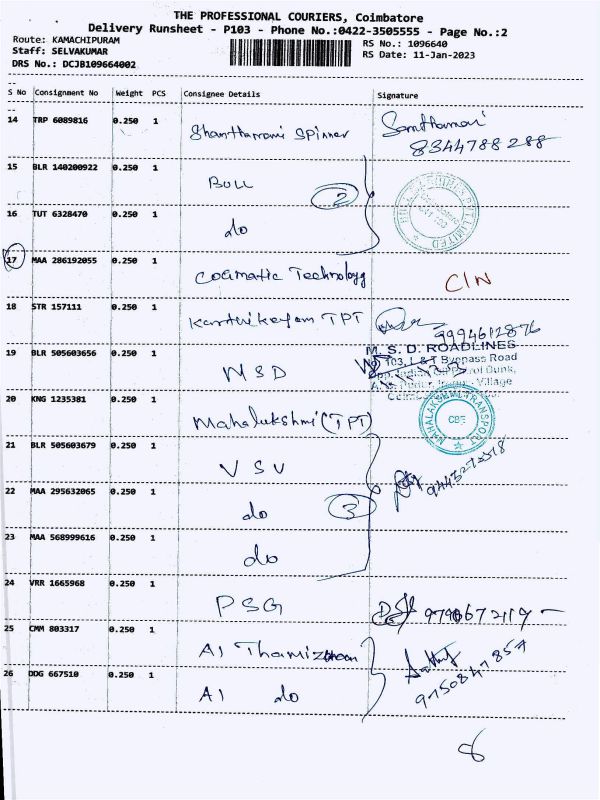 THE PROFESSIONAL COURIERS, Coimbatore
Delivery Runsheet - P103 - Phone No.:0422-3505555 - Page No.:2
Route: KAMACHIPURAM
Staff: SELVAKUMAR
DRS No.: DCJB109664002
RS No.: 1096640
RS Date: 11-Jan-2023
S No Consignment No Weight PCS Consignee Details Signature
14 TRP 6089816 0.250 1 Shantharrami Spinner
8344788288
15 BLR 140200922 0.250 1 BULL
2
16 TUT 6328470 0.250 1 do
17 MAA 286192055 0.250 1 Cosmatic Technology CIN
18 STR 157111 0.250 1 Karthikeyan TPT
9994612876
19 BLR 505603656 0.250 1 MSD
M. S. D. ROADLINES
103, L & T Bypass Road
Village
20 KNG 1235381 0.250 1 Mahalukshmi (TPT)
MAHALAKSHMI TRANSPORT
CBE
21 BLR 505603679 0.250 1 VSV
22 MAA 295632065 0.250 1 do
3
23 MAA 568999616 0.250 1 do
24 VRR 1665968 0.250 1 PSG
25 CMM 803317 0.250 1 A1 Thamizhan
9750847857
26 DDG 667510 0.250 1 A1 do
8